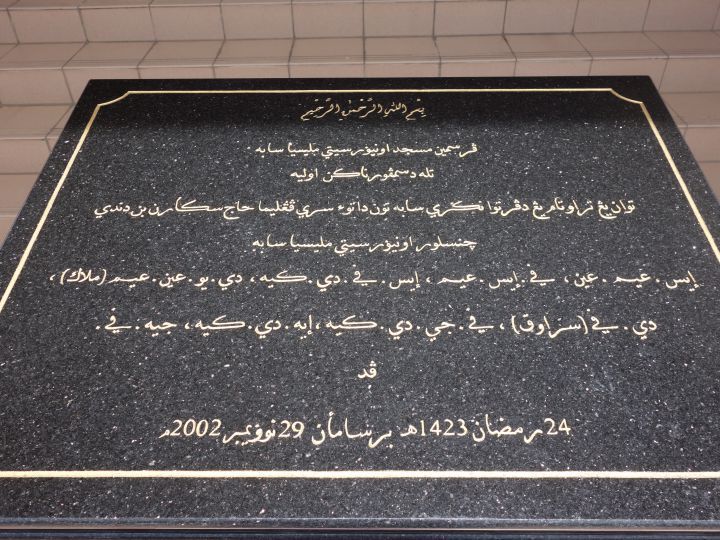 بسم الله الرحمن الرحيم
ڤرسمين مسجد اونيۏرسيتي مليسيا سابه
تله دسمڤورناکن اوليه
توان يڠ تراوتام يڠ دڤرتوا نݢري سابه تون داتوء سري ڤڠليما حاج سکارن بن دندي
چنسلور اونيۏرسيتي مليسيا سابه
إيس . عيم . عين ، ڤي . إيس . عيم ، إيس . ڤي . دي . کيه ، دي . يو . عين . عيم (ملاك) ،
دي . ڤي (سراوق) ، ڤي . جي . دي . کيه ، إيه . دي . کيه ، جيه . ڤي .
ڤد
24 رمضان 1423هـ برسامأن 29 نوۏيمبر 2002م